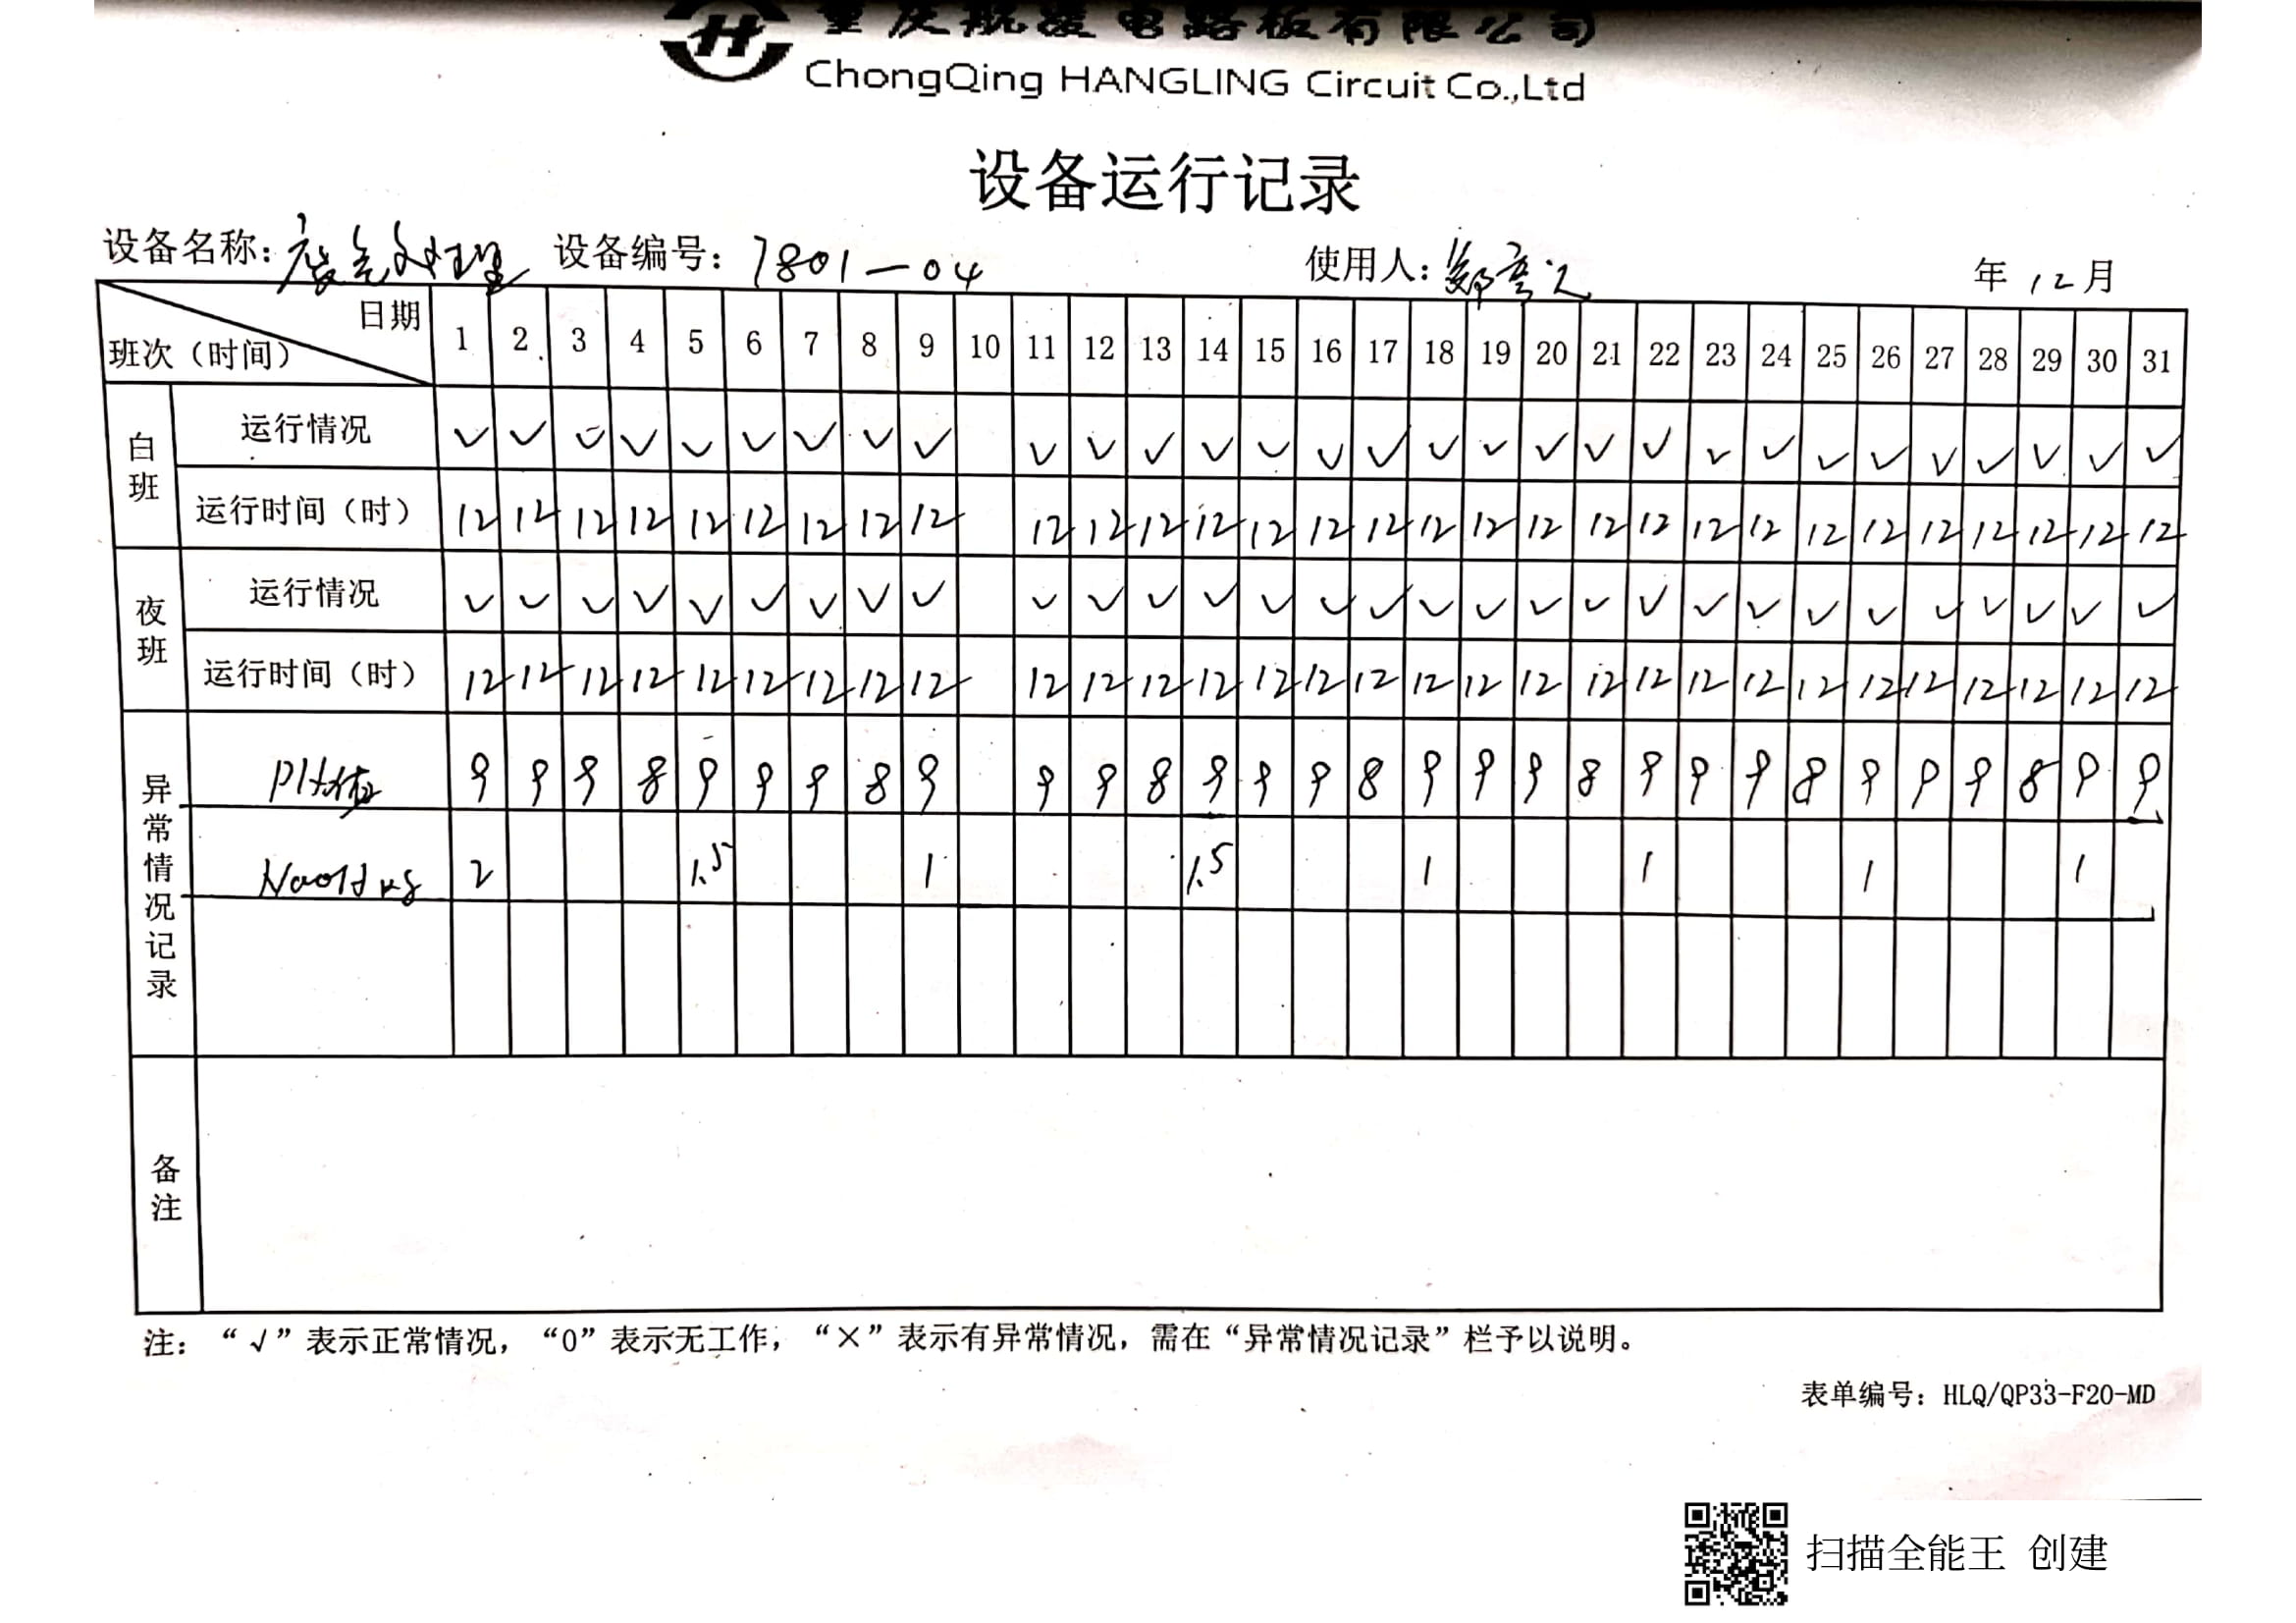 重庆航凌电路板有限公司
ChongQing HANGLING Circuit Co.,Ltd
设备运行记录
设备名称：废气处理 设备编号：7801-04 使用人：郑 年 12 月
日期 1 2 3 4 5 6 7 8 9 10 11 12 13 14 15 16 17 18 19 20 21 22 23 24 25 26 27 28 29 30 31
班次（时间）
白班 运行情况 ✓ ✓ ✓ ✓ ✓ ✓ ✓ ✓ ✓ ✓ ✓ ✓ ✓ ✓ ✓ ✓ ✓ ✓ ✓ ✓ ✓ ✓ ✓ ✓ ✓ ✓ ✓ ✓ ✓ ✓
运行时间（时） 12 12 12 12 12 12 12 12 12 12 12 12 12 12 12 12 12 12 12 12 12 12 12 12 12 12 12 12 12 12
夜班 运行情况 ✓ ✓ ✓ ✓ ✓ ✓ ✓ ✓ ✓ ✓ ✓ ✓ ✓ ✓ ✓ ✓ ✓ ✓ ✓ ✓ ✓ ✓ ✓ ✓ ✓ ✓ ✓ ✓ ✓ ✓
运行时间（时） 12 12 12 12 12 12 12 12 12 12 12 12 12 12 12 12 12 12 12 12 12 12 12 12 12 12 12 12 12 12
异常情况记录 PH值 9 9 9 8 9 9 9 8 9 9 9 8 9 9 9 8 9 9 9 8 9 9 9 8 9 9 9 8 9 9
NaOH kg 2 1.5 1 1.5 1 1 1 1
备注
注：“√”表示正常情况，“0”表示无工作，“×”表示有异常情况，需在“异常情况记录”栏予以说明。
表单编号：HLQ/QP33-F20-MD
扫描全能王 创建